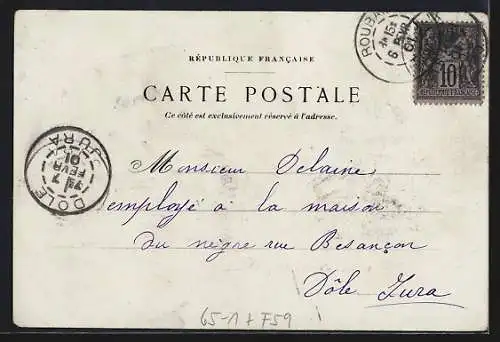 RÉPUBLIQUE FRANÇAISE
CARTE POSTALE
Ce côté est exclusivement réservé à l'adresse.
ROUBAIX
6 FEVR
01
10
REPUBLIQUE FRANÇAISE
DOLE
7
FEVR
01
JURA
Monsieur Delaine
employé a la maison
du nègre rue Besançon
Dôle Jura
65-1 + F59